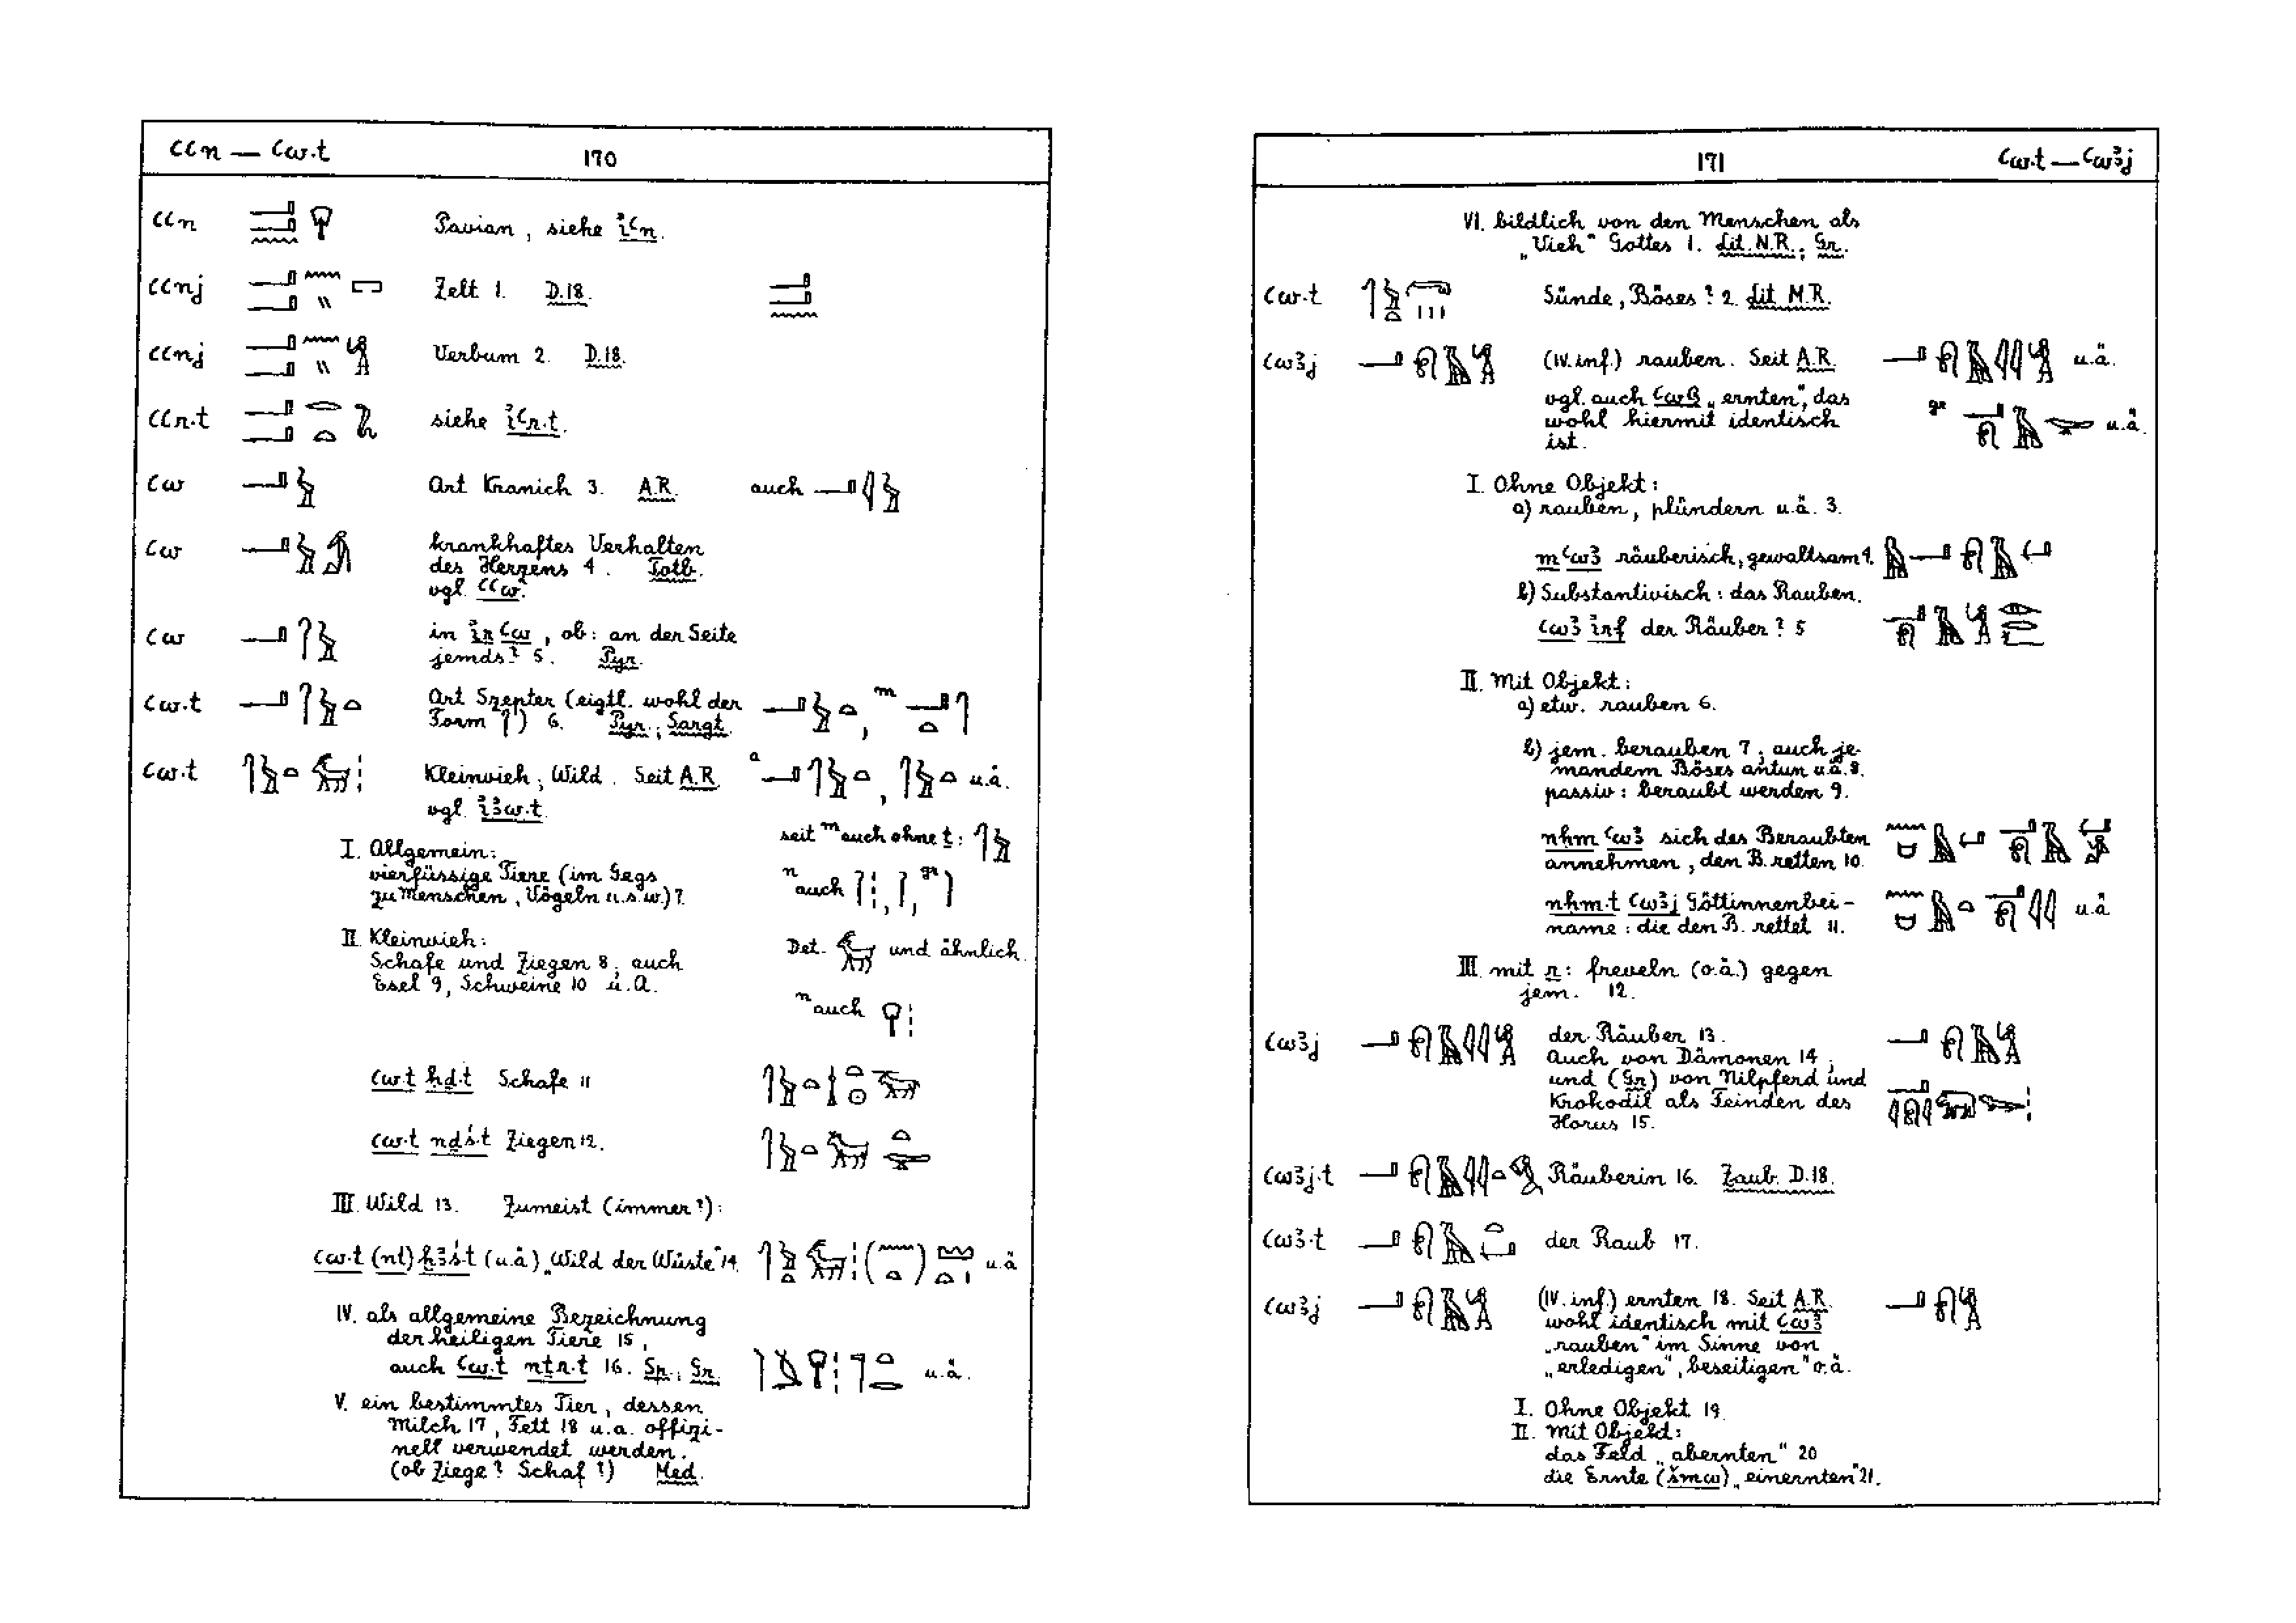 ꜥꜥn — ꜥw.t 170
ꜥꜥn Pavian, siehe i̓ꜥn.
ꜥꜥnj Zelt 1. D.18.
ꜥꜥnj Verbum 2. D.18.
ꜥꜥr.t siehe i̓ꜥr.t.
ꜥw Art Kranich 3. A.R. auch
ꜥw krankhaftes Verhalten
des Herzens 4. Totb.
vgl. ꜥꜥw.
ꜥw in i̓r ꜥw, ob: an der Seite
jemds? 5. Pyr.
ꜥw.t Art Szepter (eigtl. wohl der
Form ) 6. Pyr.; Sargt. , m
ꜥw.t Kleinvieh; Wild. Seit A.R. a , u.ä.
vgl. i̓ꜣw.t.
seit m auch ohne t:
I. Allgemein:
vierfüssige Tiere (im Gegs
zu Menschen, Vögeln u.s.w.) 7.
n auch , , gr
II. Kleinvieh:
Schafe und Ziegen 8; auch
Esel 9, Schweine 10 u.A.
Det. und ähnlich.
n auch
ꜥw.t ḥḏ.t Schafe 11
ꜥw.t nḏś.t Ziegen 12.
III. Wild 13. Zumeist (immer?):
ꜥw.t (nt) ḫꜣś.t (u.ä) „Wild der Wüste“ 14. ( ) u.ä
IV. als allgemeine Bezeichnung
der heiligen Tiere 15,
auch ꜥw.t nṯr.t 16. Sp.; Gr. u.ä.
V. ein bestimmtes Tier, dessen
Milch 17, Fett 18 u.a. offizi-
nell verwendet werden.
(ob Ziege? Schaf?) Med.
171 ꜥw.t — ꜥwꜣj
VI. bildlich von den Menschen als
„Vieh“ Gottes 1. Lit. N.R.; Gr.
ꜥw.t Sünde, Böses? 2. Lit M.R.
ꜥwꜣj (IV. inf.) rauben. Seit A.R. u.ä.
vgl. auch ꜥwꜣ „ernten“, das
wohl hiermit identisch
ist.
gr u.ä.
I. Ohne Objekt:
a) rauben, plündern u.ä. 3.
m ꜥwꜣ räuberisch, gewaltsam 4.
b) Substantivisch: das Rauben.
ꜥwꜣ i̓rf der Räuber? 5
II. Mit Objekt:
a) etw. rauben 6.
b) jem. berauben 7; auch je-
mandem Böses antun u.ä. 8.
passiv: beraubt werden 9.
nḥm ꜥwꜣ sich des Beraubten
annehmen, den B. retten 10.
nḥm.t ꜥwꜣj Göttinnenbei- u.ä
name: die den B. rettet 11.
III. mit r: freveln (o.ä.) gegen
jem. 12.
ꜥwꜣj der Räuber 13.
Auch von Dämonen 14;
und (Gr) von Nilpferd und
Krokodil als Feinden des
Horus 15.
ꜥwꜣj.t Räuberin 16. Zaub. D.18.
ꜥwꜣ.t der Raub 17.
ꜥwꜣj (IV. inf.) ernten 18. Seit A.R.
wohl identisch mit ꜥwꜣ
„rauben“ im Sinne von
„erledigen“, beseitigen“ o.ä.
I. Ohne Objekt 19.
II. Mit Objekt:
das Feld „abernten“ 20
die Ernte (šmw) „einernten“ 21.